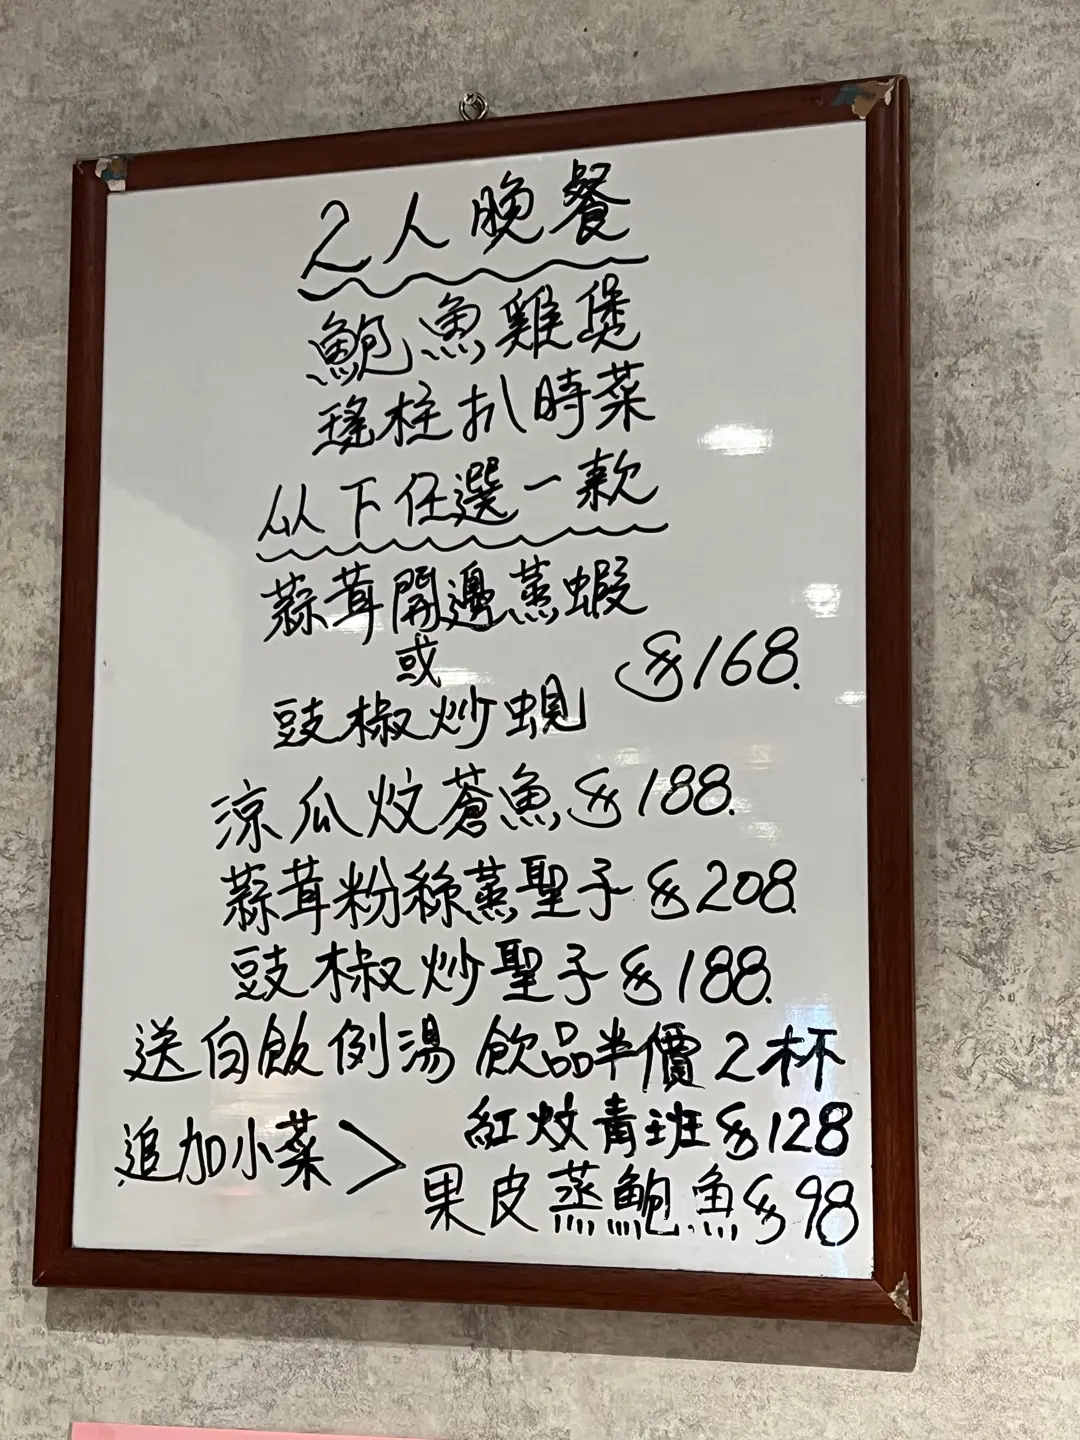 2人晚餐
鮑魚雞煲
瑤柱扒時菜
以下任選一款
蒜茸開邊蒸蝦
或
豉椒炒蜆 $168.
涼瓜炆蒼魚 $188.
蒜茸粉絲蒸聖子 $208.
豉椒炒聖子 $188.
送白飯例湯 飲品半價2杯
追加小菜> 紅炆青班 $128
果皮蒸鮑魚 $98